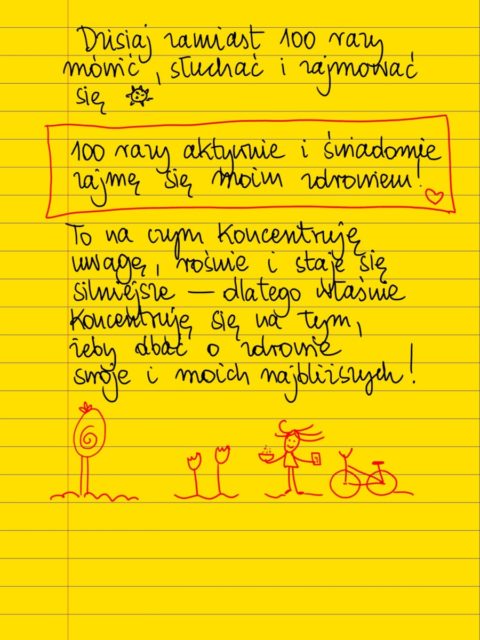 Dzisiaj zamiast 100 razy
mówić, słuchać i zajmować
się
100 razy aktywnie i świadomie
zajmę się moim zdrowiem!
To na czym koncentruję
uwagę, rośnie i staje się
silniejsze — dlatego właśnie
koncentruję się na tym,
żeby dbać o zdrowie
swoje i moich najbliższych!